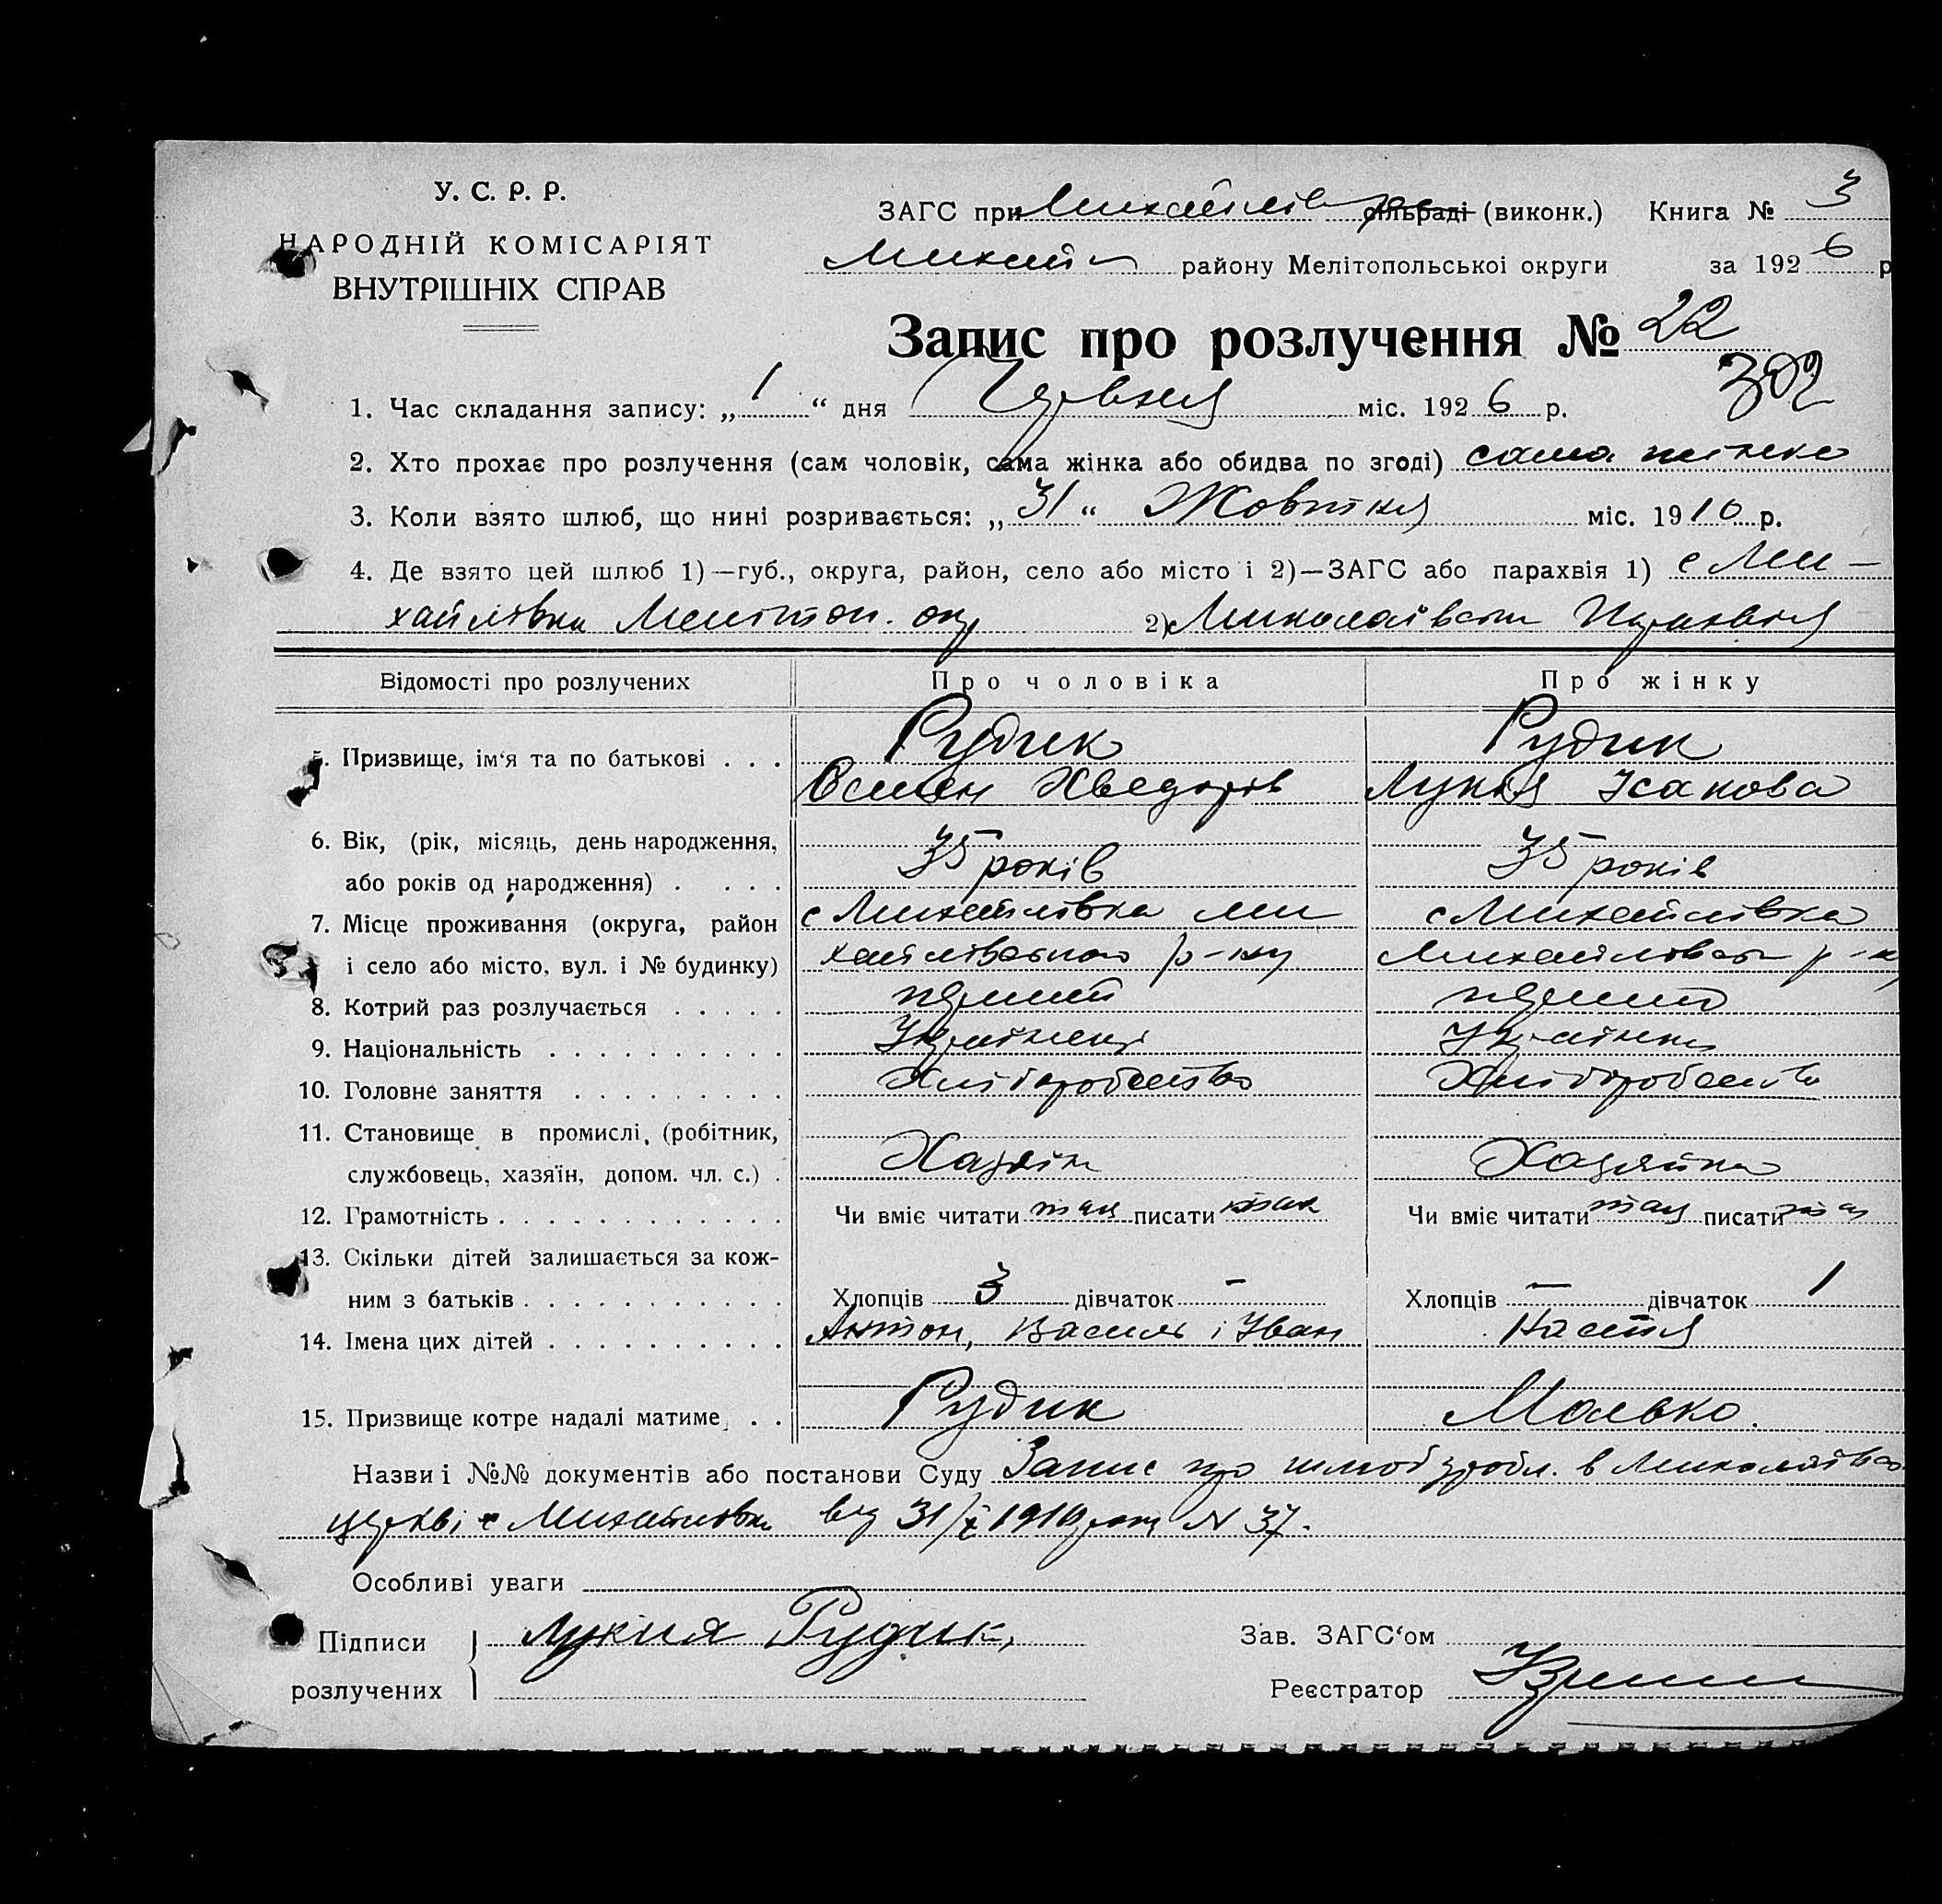 У. С. Р. Р.
НАРОДНІЙ КОМІСАРІЯТ
ВНУТРІШНІХ СПРАВ
ЗАГС при Михайлів сільраді (виконк.) Книга № 3
Михайл району Мелітопольської округи за 1926 р
Запис про розлучення № 22
302
1. Час складання запису: „1“ дня Червня міс. 1926 р.
2. Хто прохає про розлучення (сам чоловік, сама жінка або обидва по згоді) сама жінка
3. Коли взято шлюб, що нині розривається: „31“ Жовтня міс. 1910 р.
4. Де взято цей шлюб 1)—губ., округа, район, село або місто і 2)—ЗАГС або парахвія 1) с Ми-
хайлівка Мелітоп. окр 2) Миколаївська Парахвія
Відомості про розлучених Про чоловіка Про жінку
5. Призвище, ім‘я та по батькові . . . Рудик Рудик
Семен Хведорів Лукія Ісакова
6. Вік, (рік, місяць, день народження,
або років од народження) . . . . 35 років 35 років
7. Місце проживання (округа, район с Михайлівка Ми с Михайлівка
і село або місто, вул. і № будинку) хайлівського р-ну Михайлівськ р-н
8. Котрий раз розлучається . . . . . перший перший
9. Національність . . . . . . . . . . Українець Українка
10. Головне заняття . . . . . . . . . Хліборобство Хліборобство
11. Становище в промислі, (робітник,
службовець, хазяїн, допом. чл. с.) . Хазяїн Хазяйка
12. Грамотність . . . . . . . . . . . . Чи вміє читати так писати так Чи вміє читати так писати так
13. Скільки дітей залишається за кож-
ним з батьків . . . . . . . . . . . Хлопців 3 дівчаток – Хлопців – дівчаток 1
14. Імена цих дітей . . . . . . . . . . Антон, Василь і Іван Настя
15. Призвище котре надалі матиме . . Рудик Малько.
Назви і №№ документів або постанови Суду Запис про шлюб зробл. в Миколаївсь
церкві с Михайлівки від 31/X 1910 року N 37.
Особливі уваги
Підписи Лукия Рудик, Зав. ЗАГС‘ом
розлучених Реєстратор